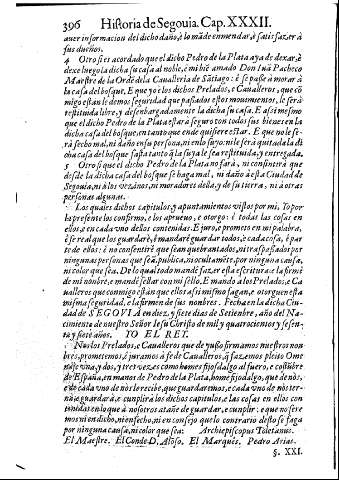 396 Historia de Segouia. Cap. XXXII.
auer informacion del dicho daño, è lo māde enmendar, è satisfazer à
sus dueños.
4 Otrosi es acordado que el dicho Pedro de la Plata aya de dexar, è
dexe luego la dicha su casa al noble, è mi biē amado Don Iuā Pacheco
Maestre de la Ordē de la Caualleria de Sātiago: è se passe à morar à
la casa del bosque. E que yo è los dichos Prelados, e Caualleros, que cō
migo estàn le demos seguridad que passados estos mouimientos, le serà
restituida libre, y desembargadamente la dicha su casa. E assimesmo
que el dicho Pedro de la Plata estarà seguro con todos sus bienes en la
dicha casa del bosque, en tanto que ende quisiere estar. E que no le se-
rà fecho mal, ni daño en su persona, ni en lo suyo: ni le serà quitada la di
cha casa del bosque fasta tanto q̄ la suya le sea restituida, y entregada.
5 Otrosi que el dicho Pedro de la Plata no farà, ni consintirà que
desde la dicha casa del bosque se haga mal, ni daño à esta Ciudad de
Segouia, ni à los vezinos, ni moradores della, y de su tierra, ni à otras
personas algunas.
Los quales dichos capitulos, y apuntamientos vistos por mi, Yo por
la presente los confirmo, e los aprueuo, e otorgo: è todas las cosas en
ellos, e en cada vno dellos contenidas. E juro, e prometo en mi palabra,
è fe real que los guardarè, è mandarè guardar todos, è cada cosa, è par-
te de ellos: è no consentirè que sean quebrantados, ni traspassados por
ningunas personas que sea publica, ni ocultamēte, por ninguna causa,
ni color que sea. De lo qual mandè fazer esta escritura: è la firmè
de mi nombre, e mandè sellar con mi sello. E mando à los Prelados, e Ca
ualleros que conmigo estàn que ellos assi mismo fagan, e otorguen esta
misma seguridad, e la firmen de sus nombres. Fecha en la dicha Ciu-
dad de SEGOVIA en diez, y siete dias de Setiembre, año del Na-
cimiento de nuestro Señor Iesu Christo de mil y quatrocientos y sesen-
ta, y siete años. YO EL REY.
Nos los Prelados, e Caualleros que de yuso firmamos nuestros nom-
bres, prometemos, è juramos à fe de Caualleros, q̄ fazemos pleito Ome
naje vna, y dos, y tres vezes como homes fijosdalgo al fuero, e costūbre
de España, en manos de Pedro de la Plata, home fijodalgo, que de nòs,
e de cada vno de nòs le recibe, que guardaremos, e cada vno de nòs ter-
nà, e guardarà, e cunplirà los dichos capitulos, e las cosas en ellos con
tenidas en lo que à nosotros atañe de guardar, e cunplir: e que no sere
mos ni en dicho, ni en fecho, ni en consejo que lo contrario desto se faga
por ninguna causa, ni color que sea: Archiepiscopus Toletanus.
El Maestre. El Conde D. Alōso. El Marquès. Pedro Arias.
§. XXI.